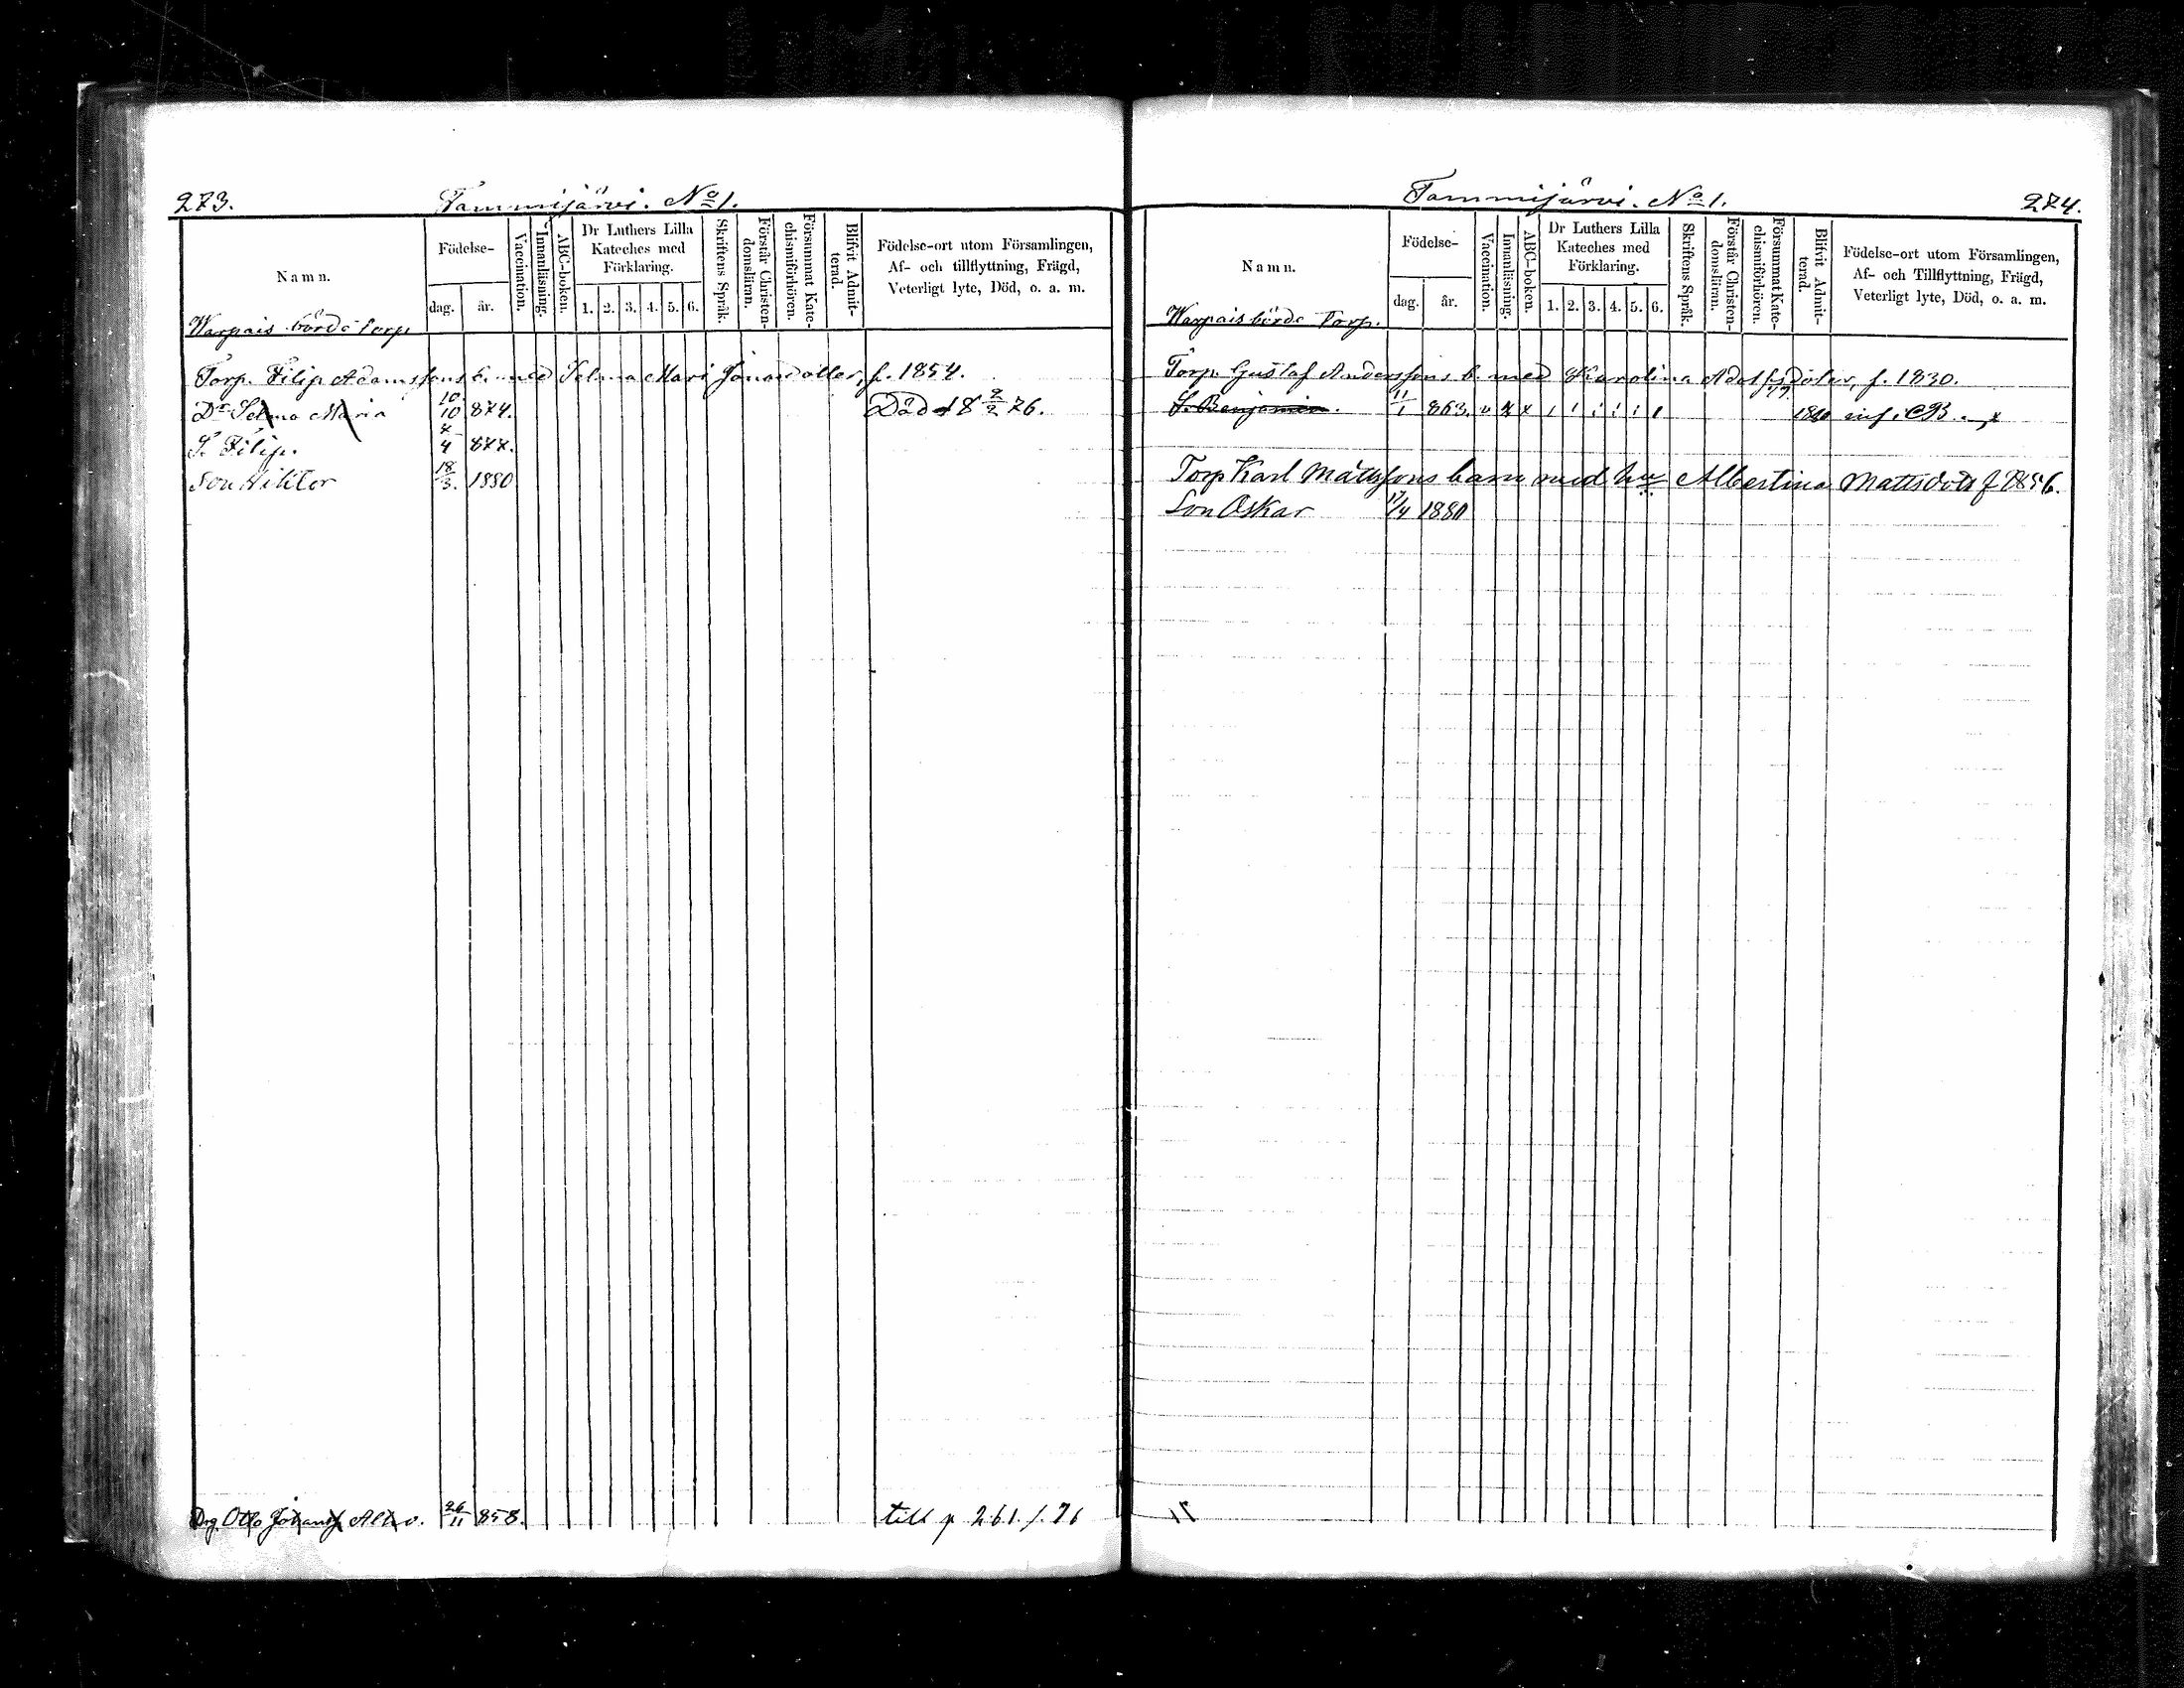 273.
Tammijärvi. No 1.
Namn.
Födelse-
dag.
år.
Vaccination.
Innanläsning.
ABC-boken.
Dr Luthers Lilla
Kateches med
Förklaring.
1. 2. 3. 4. 5. 6.
Skriftens Språk.
Förstår Christen-
domsläran.
Försummat Kate-
chismiförhören.
Blifvit Admit-
terad.
Födelse-ort utom Församlingen,
Af- och tillflyttning, Frägd,
Veterligt lyte, Död, o. a. m.
Warpais börde Torp
Torp. Filip Adamssons b. med Selma Mari Jonasdotter, f. 1854.
Dr Selma Maria 10/10 874. Död d 2/2 76.
S. Filip. 4 877.
Son Viktor 18/3. 1880
Drg. Otto Johans 26/11 858. till p 261. /. 76
Tammijärvi. No 1.
274.
Namn.
Födelse-
dag.
år.
Vaccination.
Innanläsning.
ABC-boken.
Dr Luthers Lilla
Kateches med
Förklaring.
1. 2. 3. 4. 5. 6.
Skriftens Språk.
Förstår Christen-
domsläran.
Försummat Kate-
chismiförhören.
Blifvit Admit-
terad.
Födelse-ort utom Församlingen,
Af- och Tillflyttning, Frägd,
Veterligt lyte, Död, o. a. m.
Warpais börde Torp.
Torp. Gustaf Anderssons b. med Karolina Adolfsdoter, f. 1830.
S. Benjamin. 11/1 863. v x x 1 1 1 1 1 1 77 1880 inf. CB. x
Torp Karl Mattssons barn med hu Albertina Mattsdotr f 1856.
Son Oskar 17/4 1880